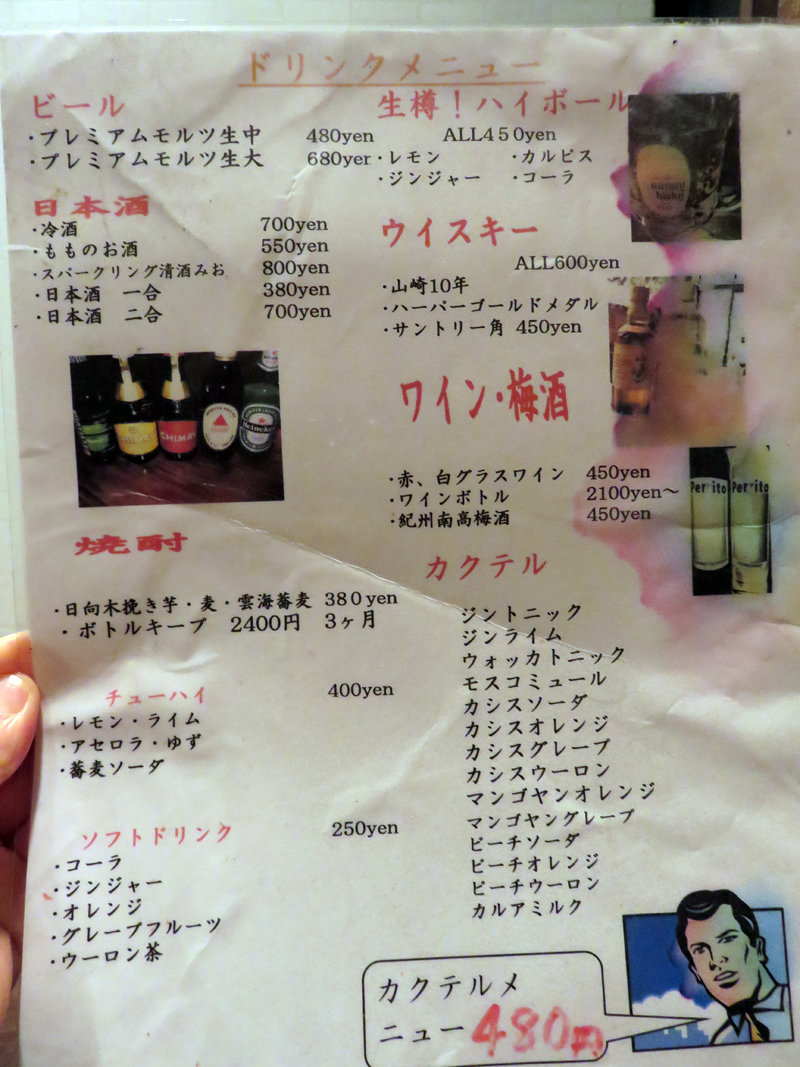 ドリンクメニュー
ビール
・プレミアムモルツ生中 480yen
・プレミアムモルツ生大 680yen
日本酒
・冷酒 700yen
・もものお酒 550yen
・スパークリング清酒みお 800yen
・日本酒 一合 380yen
・日本酒 二合 700yen
CHIMAY
Heineken
焼酎
・日向木挽き芋・麦・雲海蕎麦 380yen
・ボトルキープ 2400円 3ヶ月
チューハイ 400yen
・レモン・ライム
・アセロラ・ゆず
・蕎麦ソーダ
ソフトドリンク 250yen
・コーラ
・ジンジャー
・オレンジ
・グレープフルーツ
・ウーロン茶
生樽！ハイボール
ALL450yen
・レモン ・カルピス
・ジンジャー ・コーラ
ウイスキー
ALL600yen
・山崎10年
・ハーパーゴールドメダル
・サントリー角 450yen
ワイン・梅酒
・赤、白グラスワイン 450yen
・ワインボトル 2100yen～
・紀州南高梅酒 450yen
カクテル
ジントニック
ジンライム
ウォッカトニック
モスコミュール
カシスソーダ
カシスオレンジ
カシスグレープ
カシスウーロン
マンゴヤンオレンジ
マンゴヤングレープ
ピーチソーダ
ピーチオレンジ
ピーチウーロン
カルアミルク
カクテルメ
ニュー480円